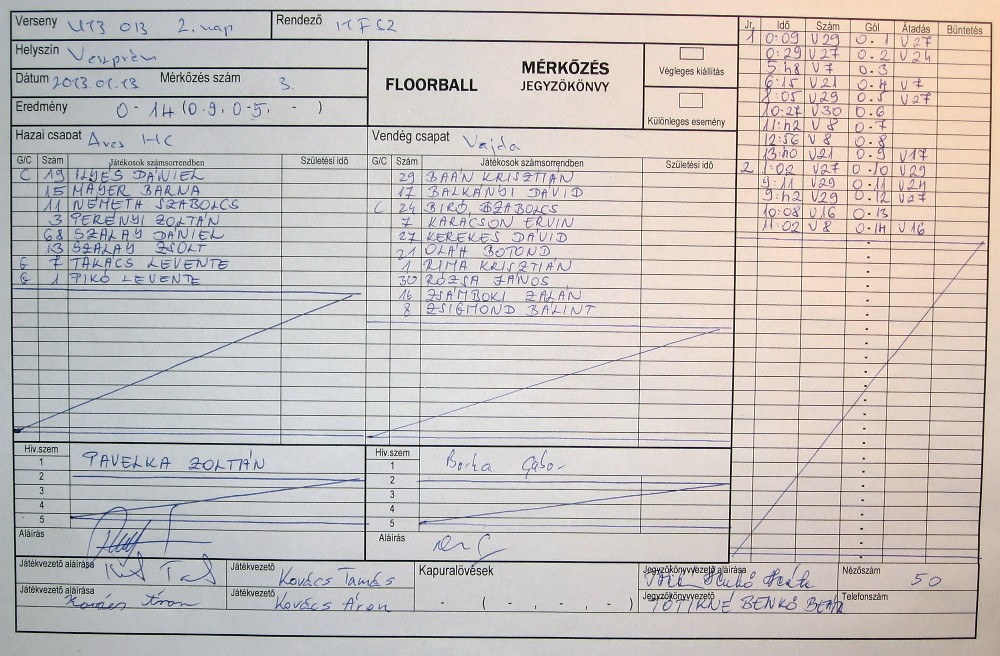 Verseny UTB 013 2. nap Rendező MFSZ
Helyszín Veszprém
Dátum 2013.01.13 Mérkőzés szám 3.
Eredmény 0-14 (0-9, 0-5, - )
FLOORBALL MÉRKŐZÉS
JEGYZŐKÖNYV
Végleges kiállítás
Különleges esemény
Hazai csapat Ares HC
G/C Szám Játékosok számsorrendben Születési idő
C 19 ILYÉS DÁNIEL
15 MAYER BARNA
11 NÉMETH SZABOLCS
3 PERÉNYI ZOLTÁN
68 SZALAY DÁNIEL
13 SZALAY ZSOLT
G 7 TAKÁCS LEVENTE
G 1 PIKÓ LEVENTE
Vendég csapat Vajda
G/C Szám Játékosok számsorrendben Születési idő
29 BAÁN KRISZTIÁN
17 BALKÁNYI DÁVID
C 24 BIRÓ SZABOLCS
7 KARÁCSON ERVIN
27 KEREKES DÁVID
21 OLÁH BOTOND
1 RIMA KRISZTIÁN
30 RÓZSA JÁNOS
16 ZSÁMBOKI ZALÁN
8 ZSIGMOND BÁLINT
Jr. Idő Szám Gól Átadás Büntetés
1 0:09 V29 0-1 V27
0:29 V27 0-2 V24
5:48 V7 0-3
6:15 V21 0-4 V7
8:05 V29 0-5 V27
10:27 V30 0-6
11:42 V8 0-7
12:56 V8 0-8
13:40 V21 0-9 V17
2 1:02 V27 0-10 V29
9:11 V29 0-11 V24
9:42 V29 0-12 V27
10:08 V16 0-13
11:02 V8 0-14 V16
Hiv.szem
1 PAVELKA ZOLTÁN
2
3
4
5
Aláírás
Hiv.szem
1 Gábor
2
3
4
5
Aláírás
Játékvezető aláírása
Játékvezető Kovács Tamás
Játékvezető aláírása Kovács Áron
Játékvezető Kovács Áron
Kapuralövések
- ( - , - , - )
Jegyzőkönyvvezető aláírása
Jegyzőkönyvvezető TÖTIKNÉ BENKŐ BEÁTA
Nézőszám 50
Telefonszám